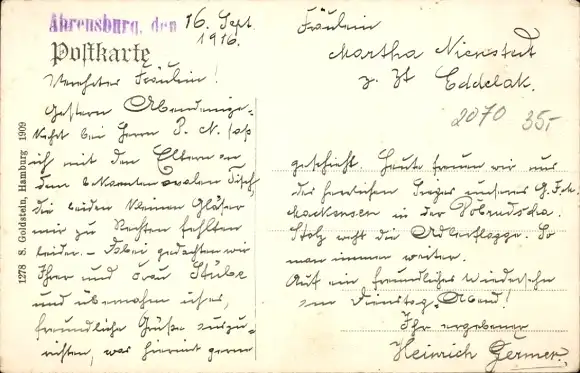 Ahrensburg, den 16. Sept.
1916.
Postkarte
Verehrtes Fräulein!
Gestern Abend einge-
kehrt bei Herrn P. N. saß
ich mit den Eltern an
dem bekannten ovalen Tisch,
die beiden kleinen Gläser
mir zur Rechten fehlten
leider. – Dabei gedachten wir
Ihrer und Frau Stübe
und übernahm ich es,
freundliche Grüße auszu-
richten, was hiermit gerne
1278 S. Goldstein, Hamburg 1909
Fräulein
Martha Nienstedt
z. Zt Eddelak.
2070 35,-
geschieht. Heute freuen wir uns
des herrlichen Sieges unseres G.F.M.
Mackensen in der Dobrudscha.
Stolz weht die Adlerflagge. So
man immer weiter.
Auf ein freundliches Wiedersehn
am Dienstag Abend!
Ihr ergebener
Heinrich Germer.